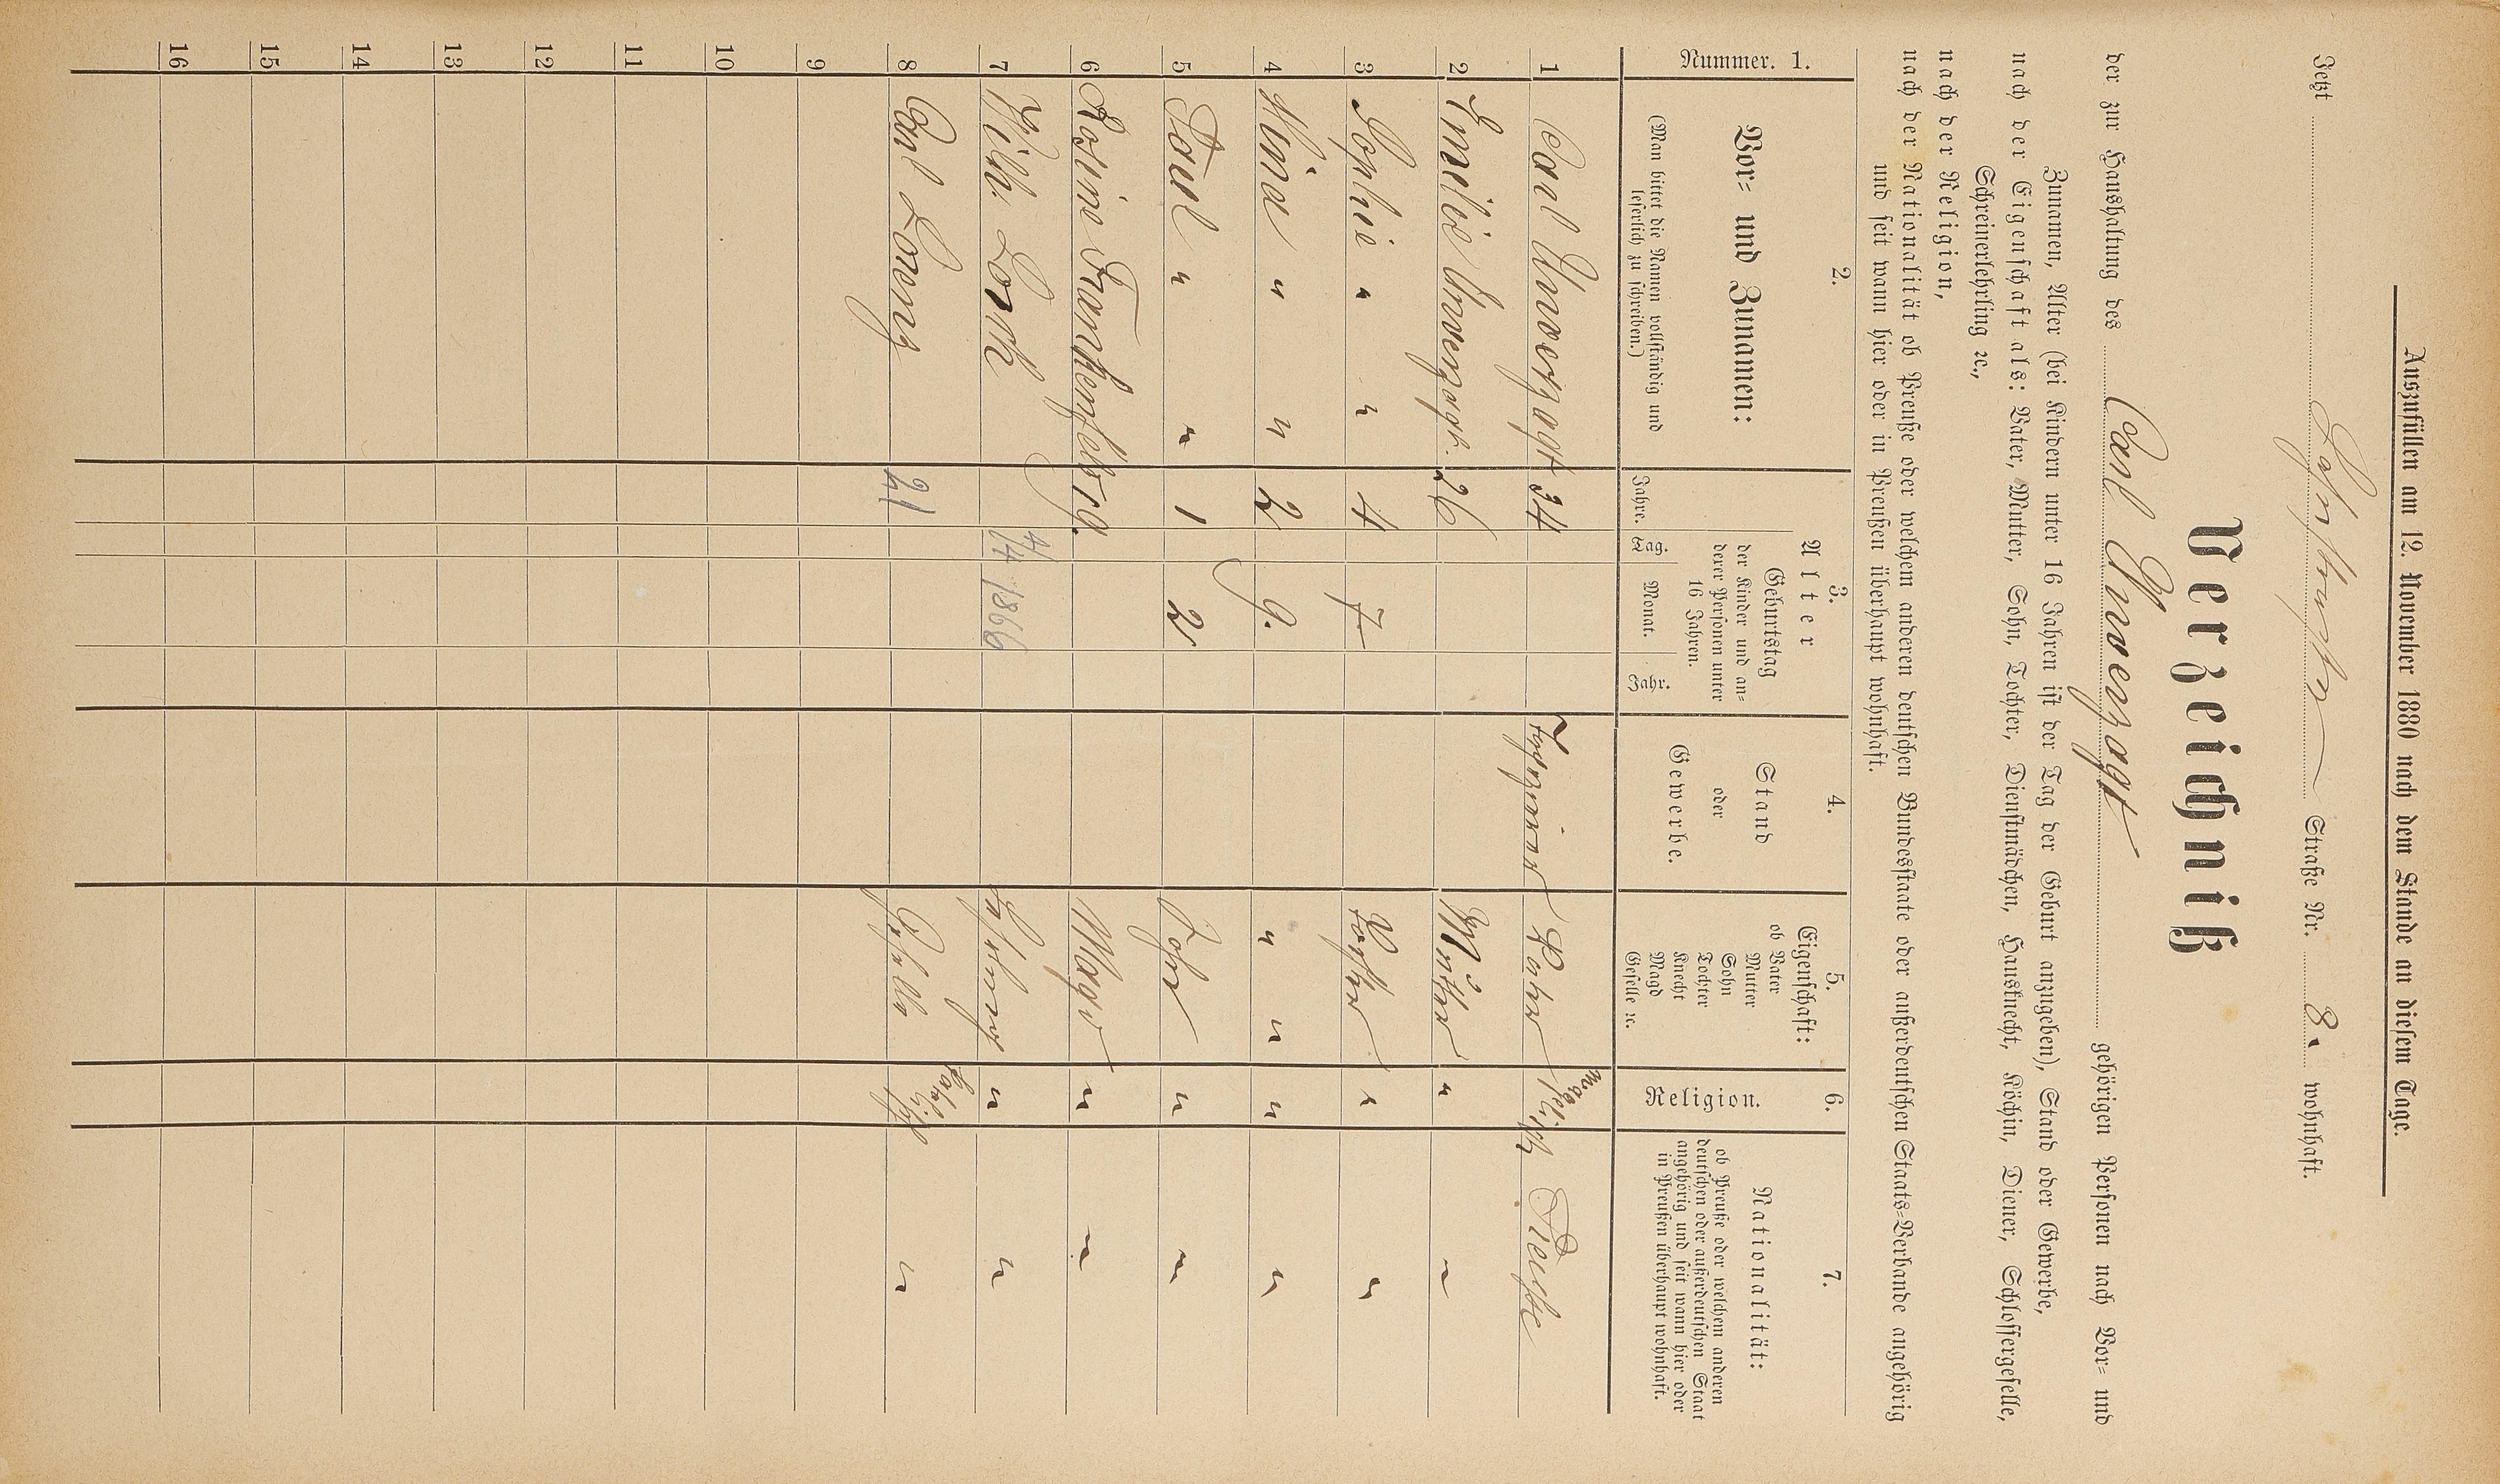 Auszufüllen am 12. November 1880 nach dem Stande an diesem Tage.
Jetzt Straße Nr. 8. wohnhaft.
Verzeichniß
der zur Haushaltung des Carl Unverzagt gehörigen Personen nach Vor- und
Zunamen, Alter (bei Kindern unter 16 Jahren ist der Tag der Geburt anzugeben), Stand oder Gewerbe,
nach der Eigenschaft als: Vater, Mutter, Sohn, Tochter, Dienstmädchen, Hausknecht, Köchin, Diener, Schlossergeselle,
Schreinerlehrling ꝛc.,
nach der Religion,
nach der Nationalität ob Preuße oder welchem anderen deutschen Bundesstaate oder außerdeutschen Staats-Verbande angehörig
und seit wann hier oder in Preußen überhaupt wohnhaft.
Nummer. 1.
2.
Vor- und Zunamen:
(Man bittet die Namen vollständig und
leserlich zu schreiben.)
3.
Alter
Jahre.
Geburtstag
der Kinder und an-
derer Personen unter
16 Jahren.
Tag. Monat. Jahr.
4.
Stand
oder
Gewerbe.
5.
Eigenschaft:
ob Vater
Mutter
Sohn
Tochter
Knecht
Magd
Geselle ꝛc.
6.
Religion.
7.
Nationalität:
ob Preuße oder welchem anderen
deutschen oder außerdeutschen Staat
angehörig und seit wann hier oder
in Preußen überhaupt wohnhaft.
1 Carl Unverzagt 34 Tapezierer Vater evangelisch Preuße
2 Emilie Unverzagt. 26 Mutter " "
3 Sophie " " 4 7. Tochter " "
4 Mina " " 2 9. " " " "
5 Paul " " 1 2 Sohn " "
6 Rosine Frankenfeld 19. Magd " "
7 Wilh. Lorch 4/4 1866 Lehrling " "
8 Carl Lorenz 21 Geselle Katholisch "
9
10
11
12
13
14
15
16